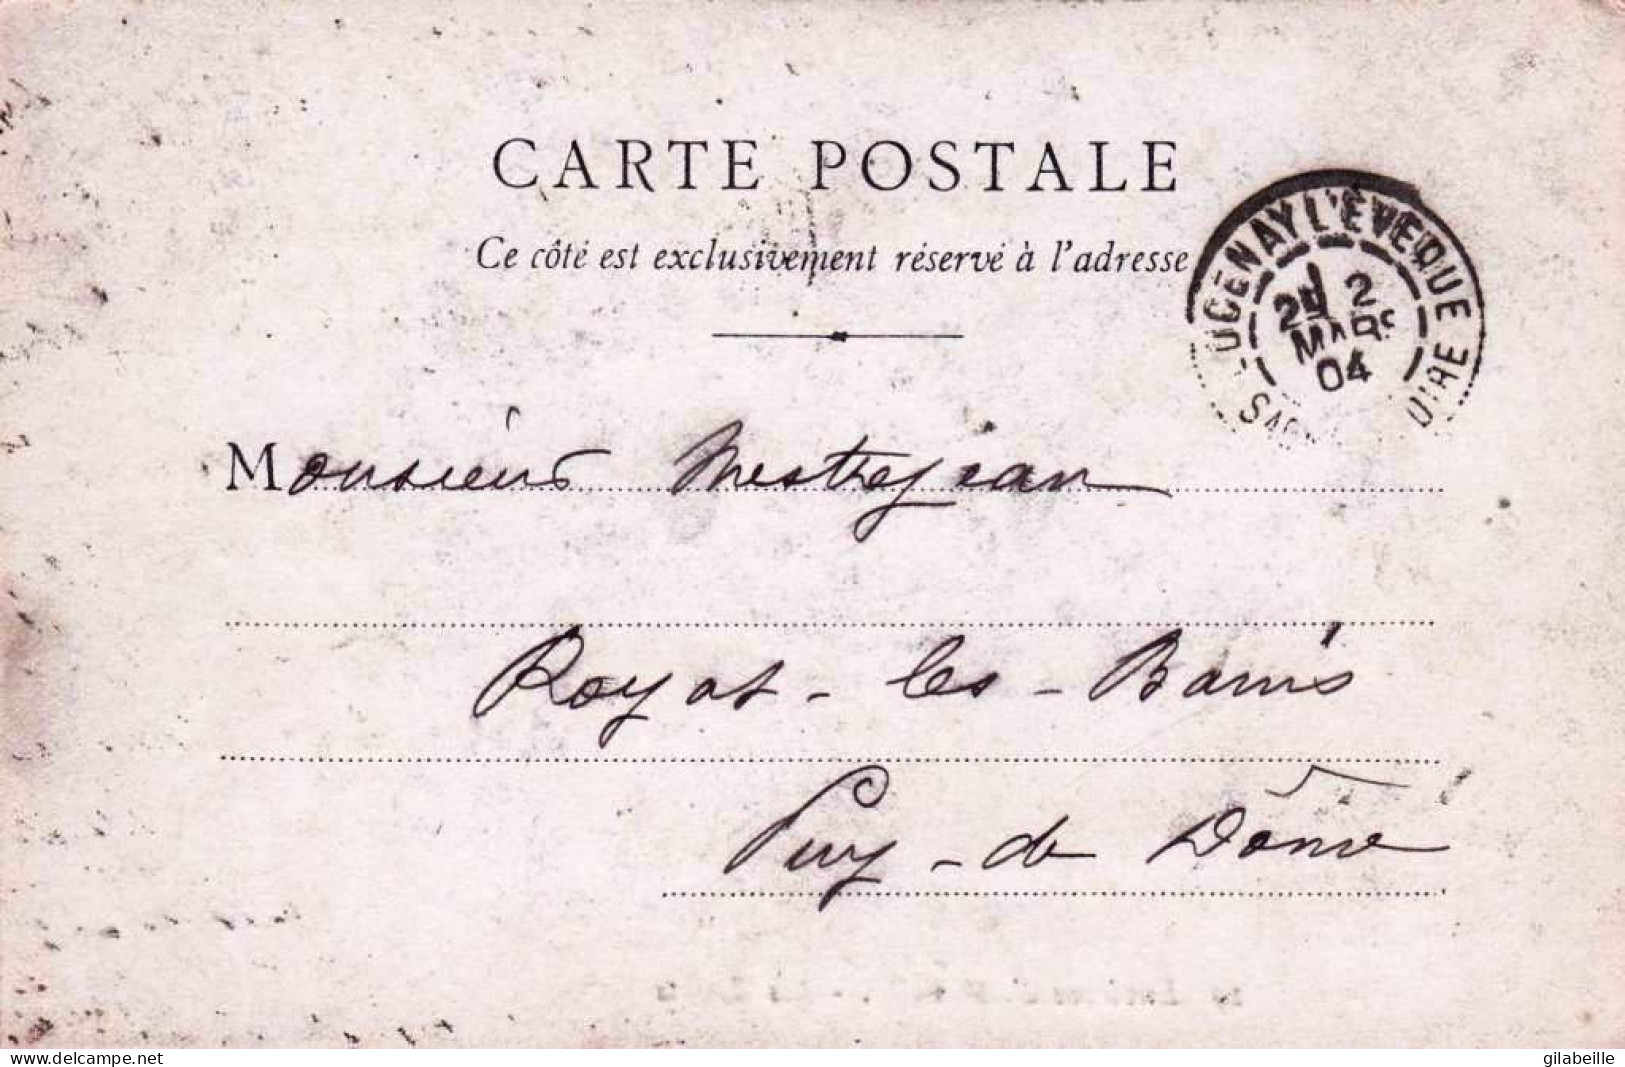 CARTE POSTALE
Ce côté est exclusivement réservé à l'adresse
UCENAY L'ÉVEQUE
2
MARS
04
Monsieur Mestrejean
Royat-les-Bains
Puy-de Dôme
www.delcampe.net
gilabeille